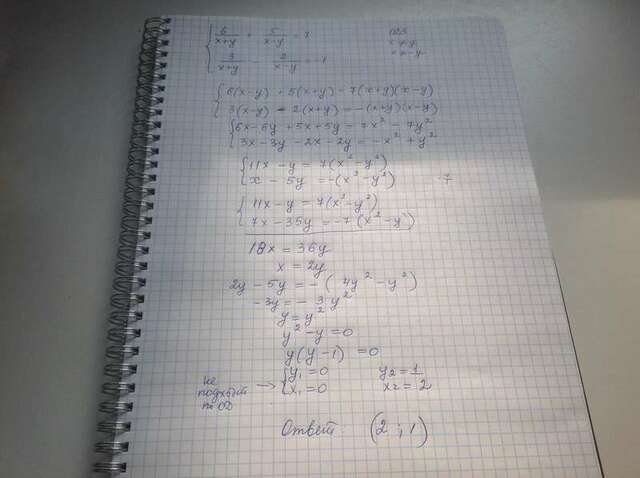 { 6/(x+y) + 5/(x-y) = 7 ОДЗ
x ≠ y
3/(x+y) - 2/(x-y) = -1 x ≠ -y
{ 6(x-y) + 5(x+y) = 7(x+y)(x-y)
3(x-y) - 2(x+y) = -(x+y)(x-y)
{ 6x-6y+5x+5y = 7x² - 7y²
3x-3y-2x-2y = -x² + y²
{ 11x-y = 7(x²-y²)
x - 5y = -(x²-y²) ·7
{ 11x-y = 7(x²-y²)
7x-35y = -7(x²-y²)
18x = 36y
x = 2y
2y-5y = -(4y²-y²)
-3y = -3y²
y = y²
y²-y = 0
y(y-1) = 0
{ y₁=0 y₂=1
не подходит → x₁=0 x₂=2
Ответ: (2;1)